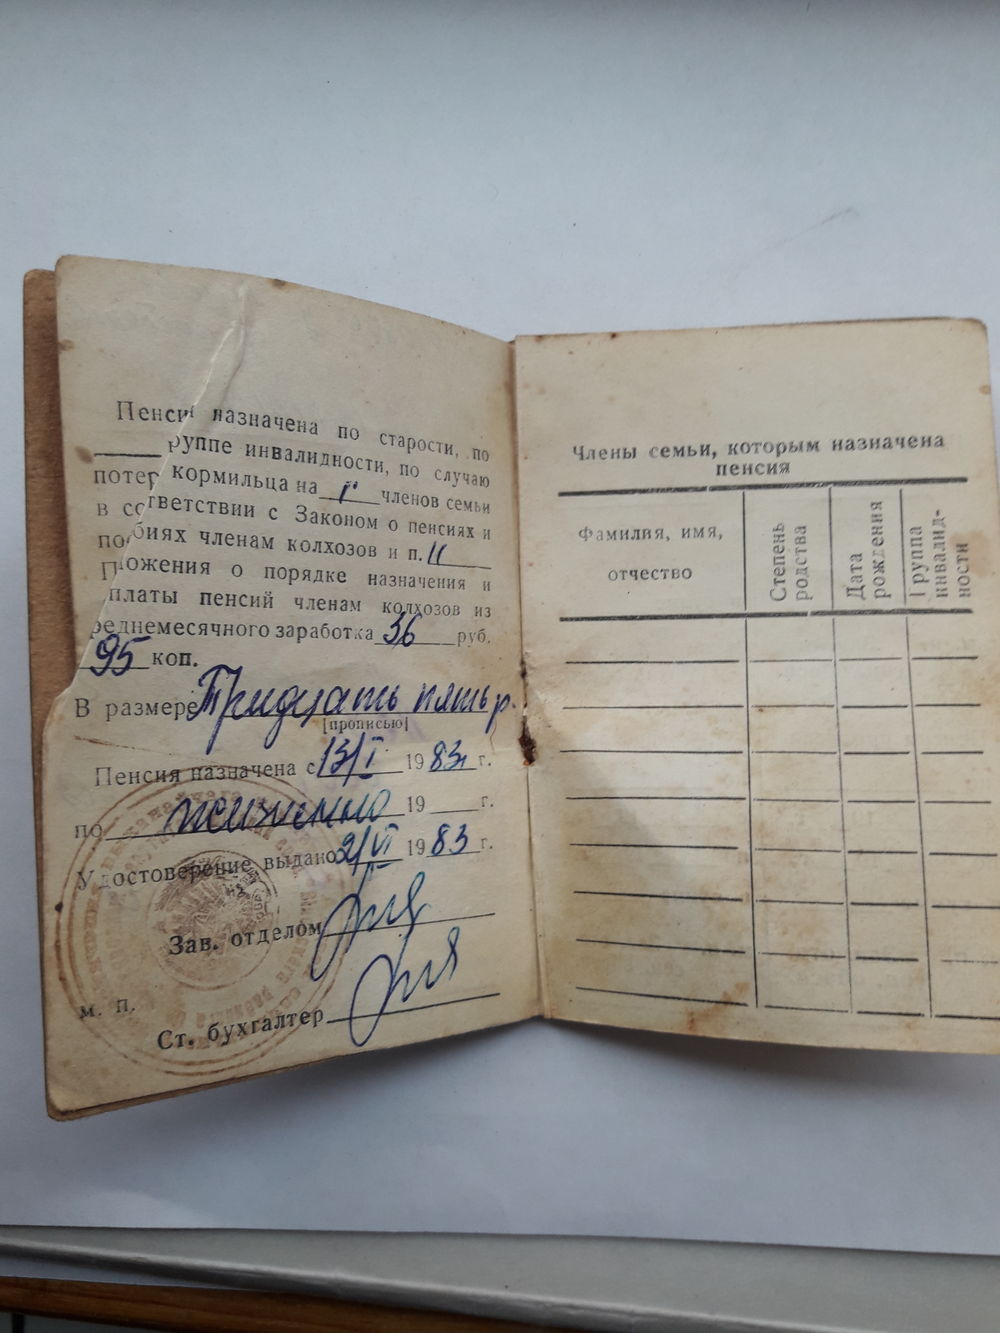 Пенси назначена по старости, по
руппе инвалидности, по случаю
потер кормильца на членов семьи
в со тветствии с Законом о пенсиях и
по биях членам колхозов и п. 11
П ложения о порядке назначения и
платы пенсий членам колхозов из
реднемесячного заработка 36 руб.
95 коп.
В размере Тридцать пять р.
[прописью]
Пенсия назначена с 13/I 1983 г.
по пожизненно 19 г.
Удостоверение выдано 2/VI 1983 г.
Зав. отделом
м. п.
Ст. бухгалтер
Члены семьи, которым назначена
пенсия
Фамилия, имя,
отчество
Степень
родства
Дата
рождения
Группа
инвалид-
ности